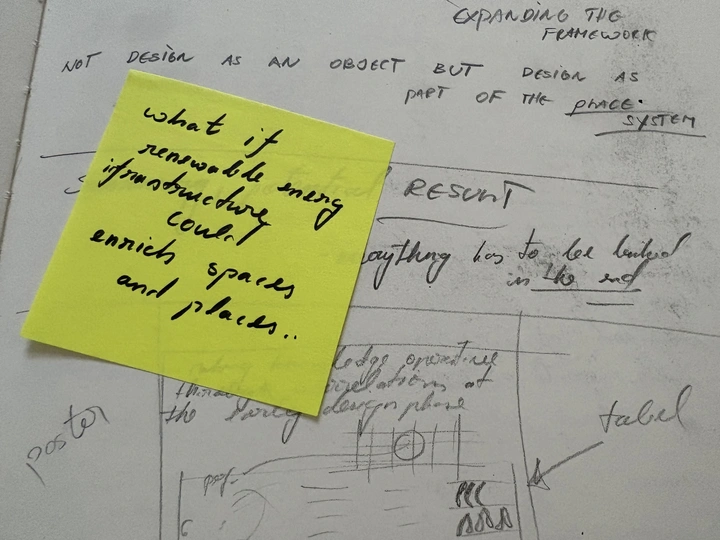 EXPANDING THE
FRAMEWORK
NOT DESIGN AS AN OBJECT BUT DESIGN AS
PART OF THE PLACE.
SYSTEM
what if
renewable energy
ifrastructure
could
enrich spaces
and places..
RESULT
has to be linked
in the end
operating
at
the early design phase
poster
tabel